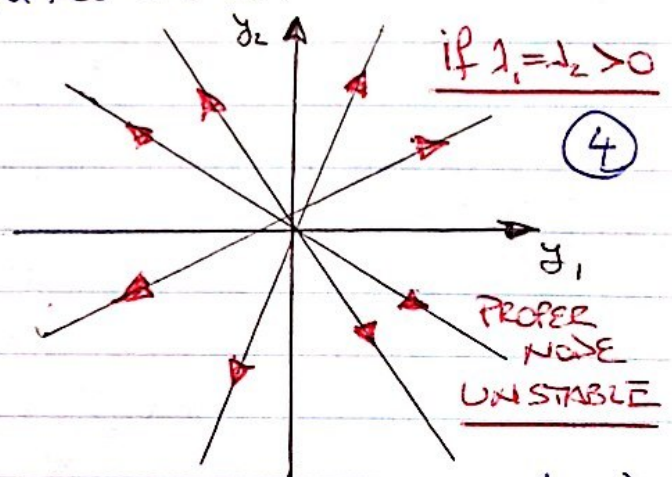 y₂
if λ₁=λ₂>0
4
y₁
PROPER
NODE
UNSTABLE